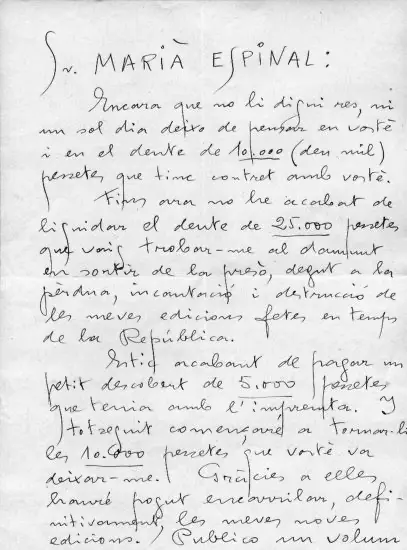 Sr. MARIÀ ESPINAL:
Encara que no li digui res, ni
un sol dia deixo de pensar en vostè
i en el deute de 10.000 (deu mil)
pessetes que tinc contret amb vostè.
Fins ara no he acabat de
liquidar el deute de 25.000 pessetes
que vaig trobar-me al damunt
en sortir de la presó, degut a la
pèrdua, incautació i destrucció de
les meves edicions fetes en temps
de la República.
Estic acabant de pagar un
petit descobert de 5.000 pessetes
que tenia amb l'impremta. I
totseguit començaré a tornar-li
les 10.000 pessetes que vostè va
deixar-me. Gràcies a elles
hauré pogut encarrilar, defi-
nitivament, les meves noves
edicions. Publico un volum